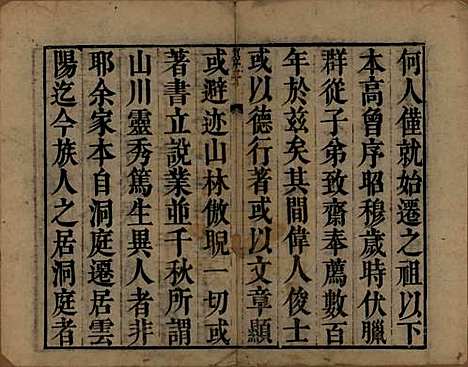 何人僅就始遷之祖以下
本高曾序昭穆歲時伏臘
群從子弟致齋奉薦數百
年於茲矣其間偉人俊士
或以德行著或以文章顯
或避迹山林傲睨一切或
著書立說業並千秋所謂
山川靈秀篤生異人者非
耶余家本自洞庭遷居雲
陽迄今族人之居洞庭者